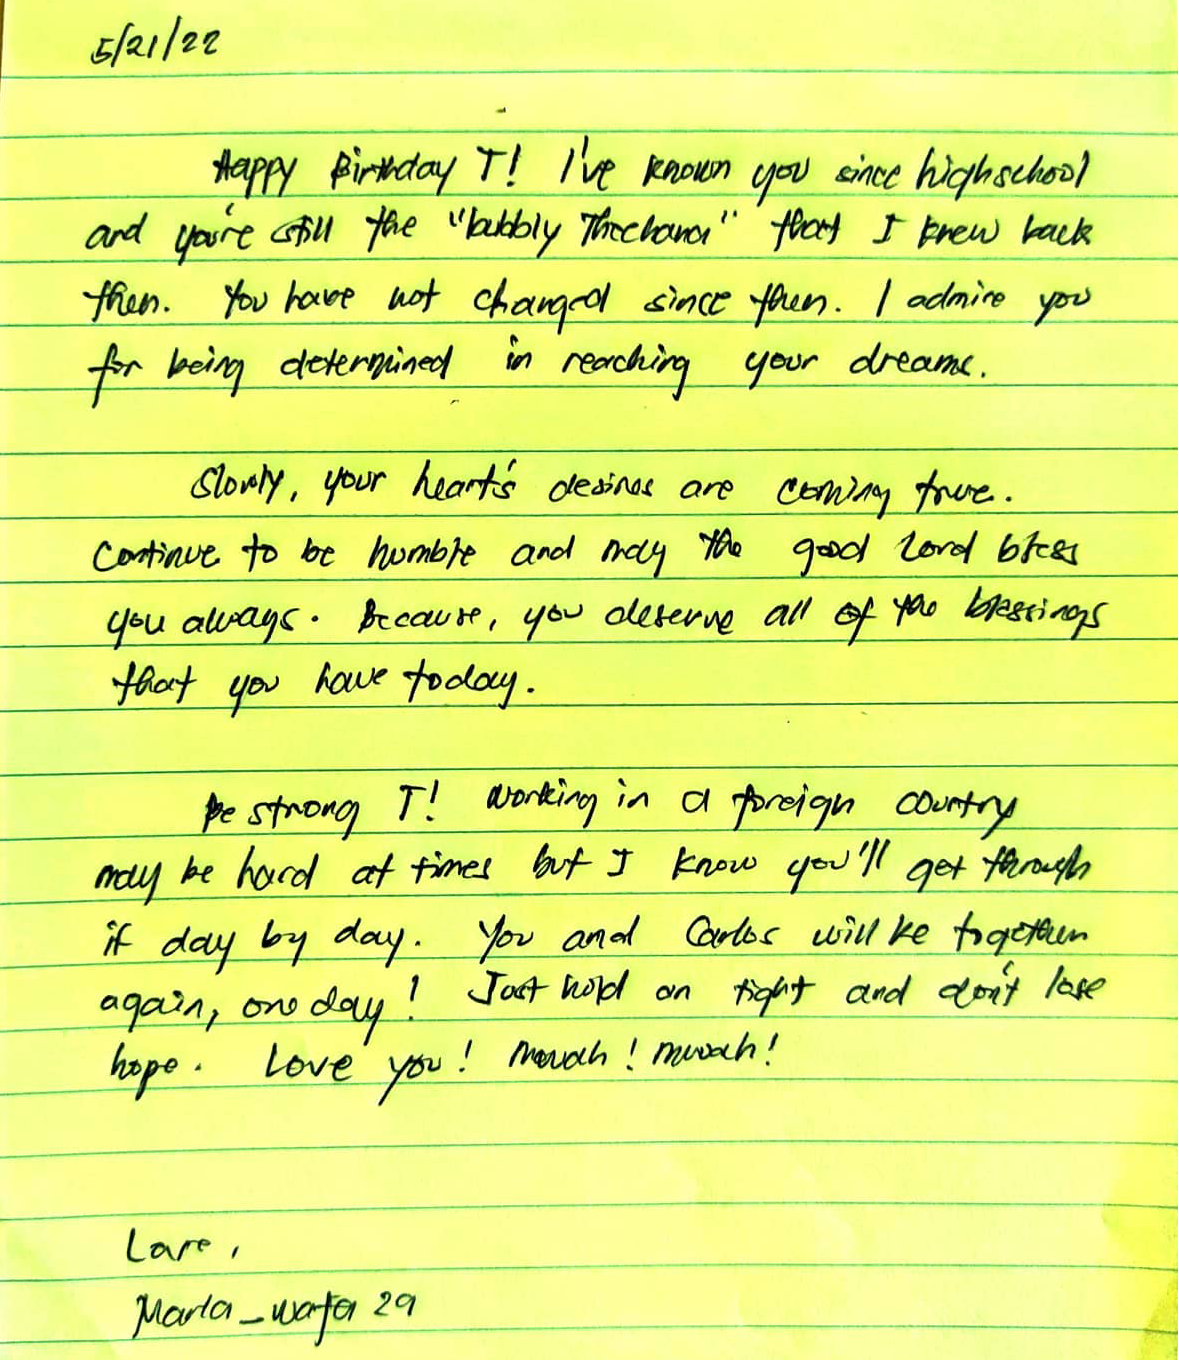 5/21/22
Happy Birthday T! I've known you since highschool
and you're still the "bubbly Theechana" that I knew back
then. You have not changed since then. I admire you
for being determined in reaching your dreams.
Slowly, your heart's desires are coming true.
Continue to be humble and may the good Lord bless
you always. Because, you deserve all of the blessings
that you have today.
Be strong T! Working in a foreign country
may be hard at times but I know you'll get through
it day by day. You and Carlos will be together
again, one day! Just hold on tight and don't lose
hope. Love you! Mwah! mwah!
Love,
Marla_wafa 29